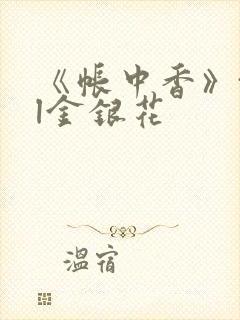 《帐中香》
|金银花
温宿